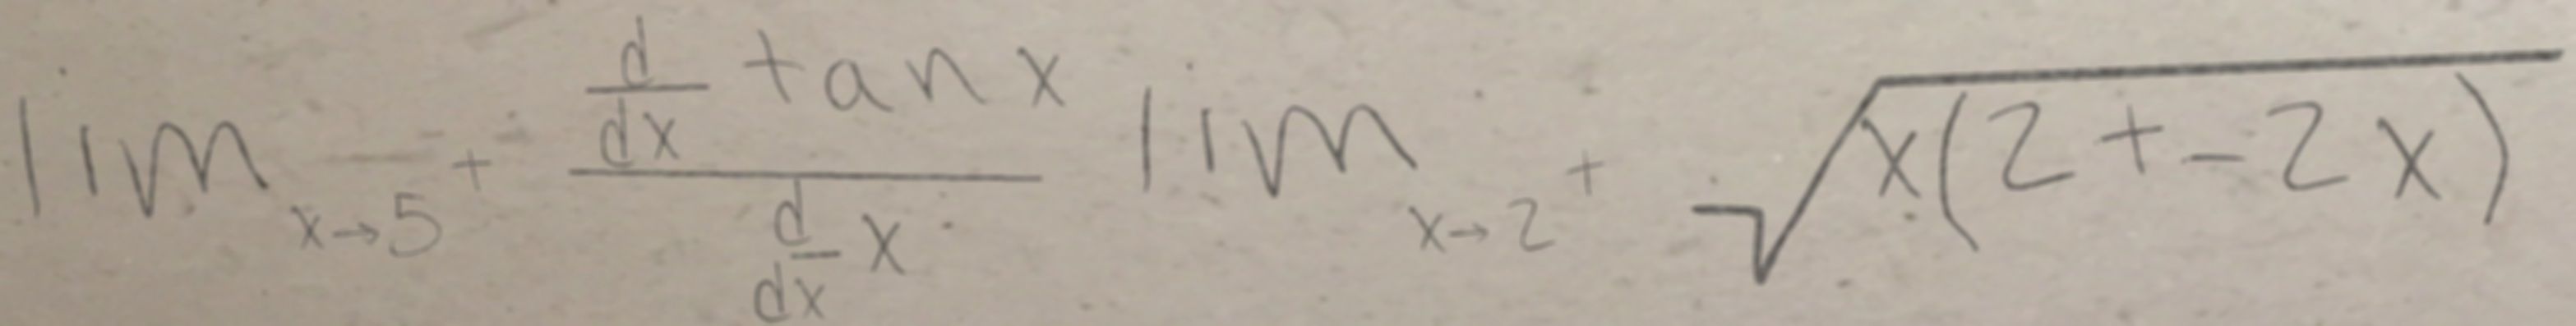 \lim_{x \to 5^+} \frac{\frac{d}{dx} \tan x}{\frac{d}{dx} x} \lim_{x \to 2^+} \sqrt{x(2+-2x)}